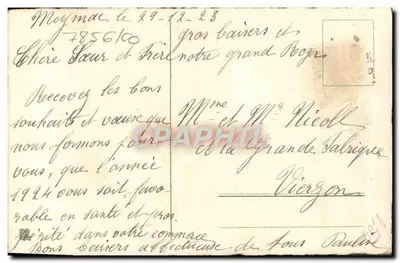 Meymac le 29-12-23
7856/00
gros baisers et
Chère Sœur et Frère
notre grand Roger
Recevez les bons
souhaits et vœux que
nous formons pour
vous, que l'année
1924 vous soit favo-
rable en santé et pros-
périté dans votre commerce
Bons baisers affectueuse de tous Pauline
Mme et Mr Nicoll
et la Grande Fabrique
Vierzon
CPAPHIL